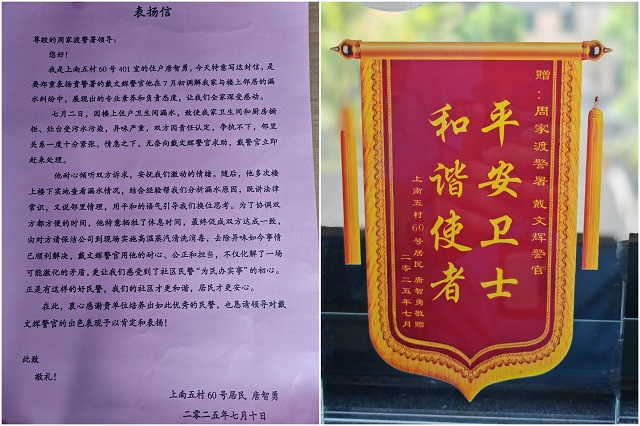 表扬信
尊敬的周家渡警署领导:
您好!
我是上南五村 60 号 401 室的住户唐智勇,今天特意写这封信,是
要郑重表扬贵警署的戴文辉警官他在 7 月初调解我家与楼上邻居的漏
水纠纷中,展现出的专业素养和负责态度,让我们全家深受感动。
七月二日,因楼上住户卫生间漏水,致使我家卫生间和厨房橱
柜、灶台受污水污染,异味严重,双方因责任认定,争执不下,邻里
关系一度十分紧张。情急之下,无奈向戴文辉警官求助,戴警官立即
赶来处理。
他耐心倾听双方诉求,安抚我们激动的情绪。随后,他多次楼
上楼下实地查看漏水情况,结合经验帮我们分析漏水原因,既讲法律
常识,又说邻里情理,用平和的语气引导我们换位思考。为了协调双
方都方便的时间,他特意牺牲了休息时间,最终促成双方达成一致,
由对方请保洁公司到现场实施高温蒸汽清洗消毒,去除异味如今事情
已顺利解决,戴文辉警官用他的耐心、公正和担当,不仅化解了一场
可能激化的矛盾,更让我们感受到了社区民警“为民办实事”的初心。
正是有这样的好民警,我们的社区才更和谐,居民才更安心。
在此,衷心感谢贵单位培养出如此优秀的民警,也恳请领导对戴
文辉警官的出色表现予以肯定和表扬!
此致
敬礼!
上南五村 60 号居民 唐智勇
二零二五年七月十日
赠:周家渡警署 戴文辉警官
平安卫士
和谐使者
上南五村60号居民 唐智勇敬赠
二零二五年七月